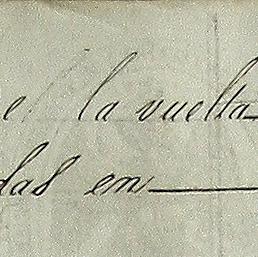 e la vuelta
das en